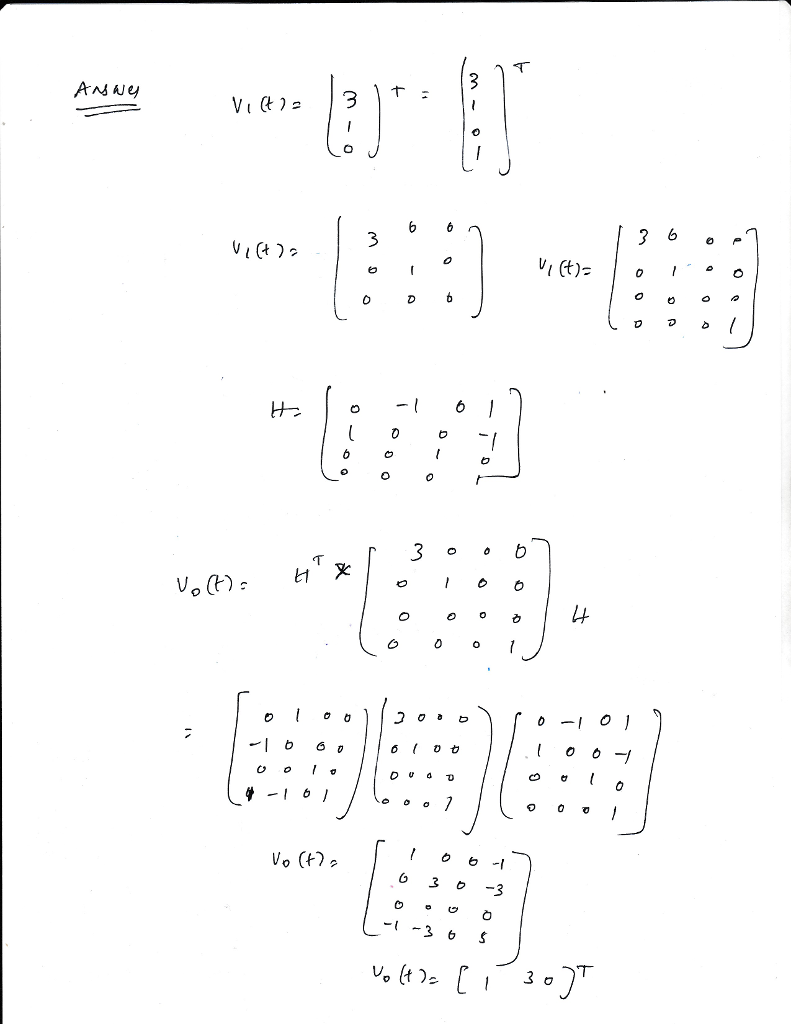 Answer
V₁(t) = [3 1 0]ᵀ = [3 1 0 1]ᵀ
V₁(t) = [3 0 0
0 1 0
0 0 0]
V₁(t) = [3 0 0 0
0 1 0 0
0 0 0 0
0 0 0 1]
H = [0 -1 0 1
1 0 0 -1
0 0 1 0
0 0 0 1]
V₀(t) = Hᵀ * [3 0 0 0
0 1 0 0
0 0 0 0
0 0 0 1] H
= [0 1 0 0 [3 0 0 0 [0 -1 0 1
-1 0 0 0 0 1 0 0 1 0 0 -1
0 0 1 0 0 0 0 0 0 0 1 0
-1 0 1] 0 0 0 1] 0 0 0 1]
V₀(t) = [1 0 0 -1
0 3 0 -3
0 0 0 0
-1 -3 0 5]
V₀(t) = [1 3 0]ᵀ